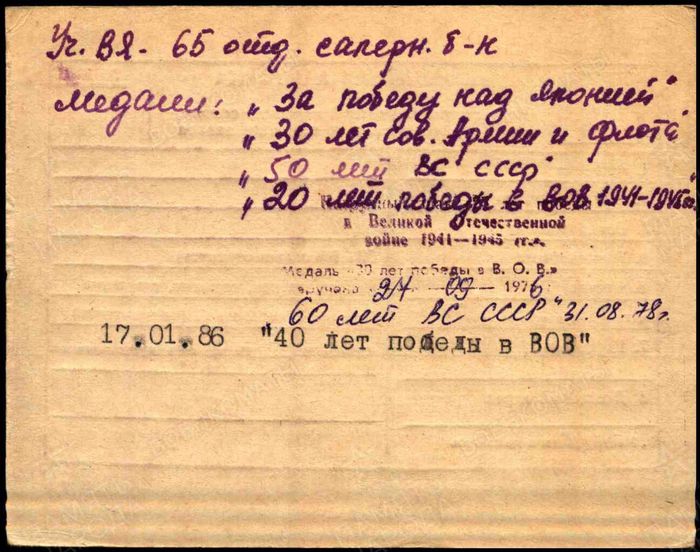 Уч. ВЯ - 65 отд. саперн. б-н
медали: „За победу над Японией"
„30 лет сов. Армии и флота"
„50 лет ВС СССР"
„20 лет победы в ВОВ 1941-1945гг."
лет победы
в Великой Отечественной
войне 1941—1945 гг.».
Медаль «30 лет победы в В. О. В.»
вручена 27 09 1976
60 лет ВС СССР" 31.08.78г.
17.01.86 "40 лет победы в ВОВ"